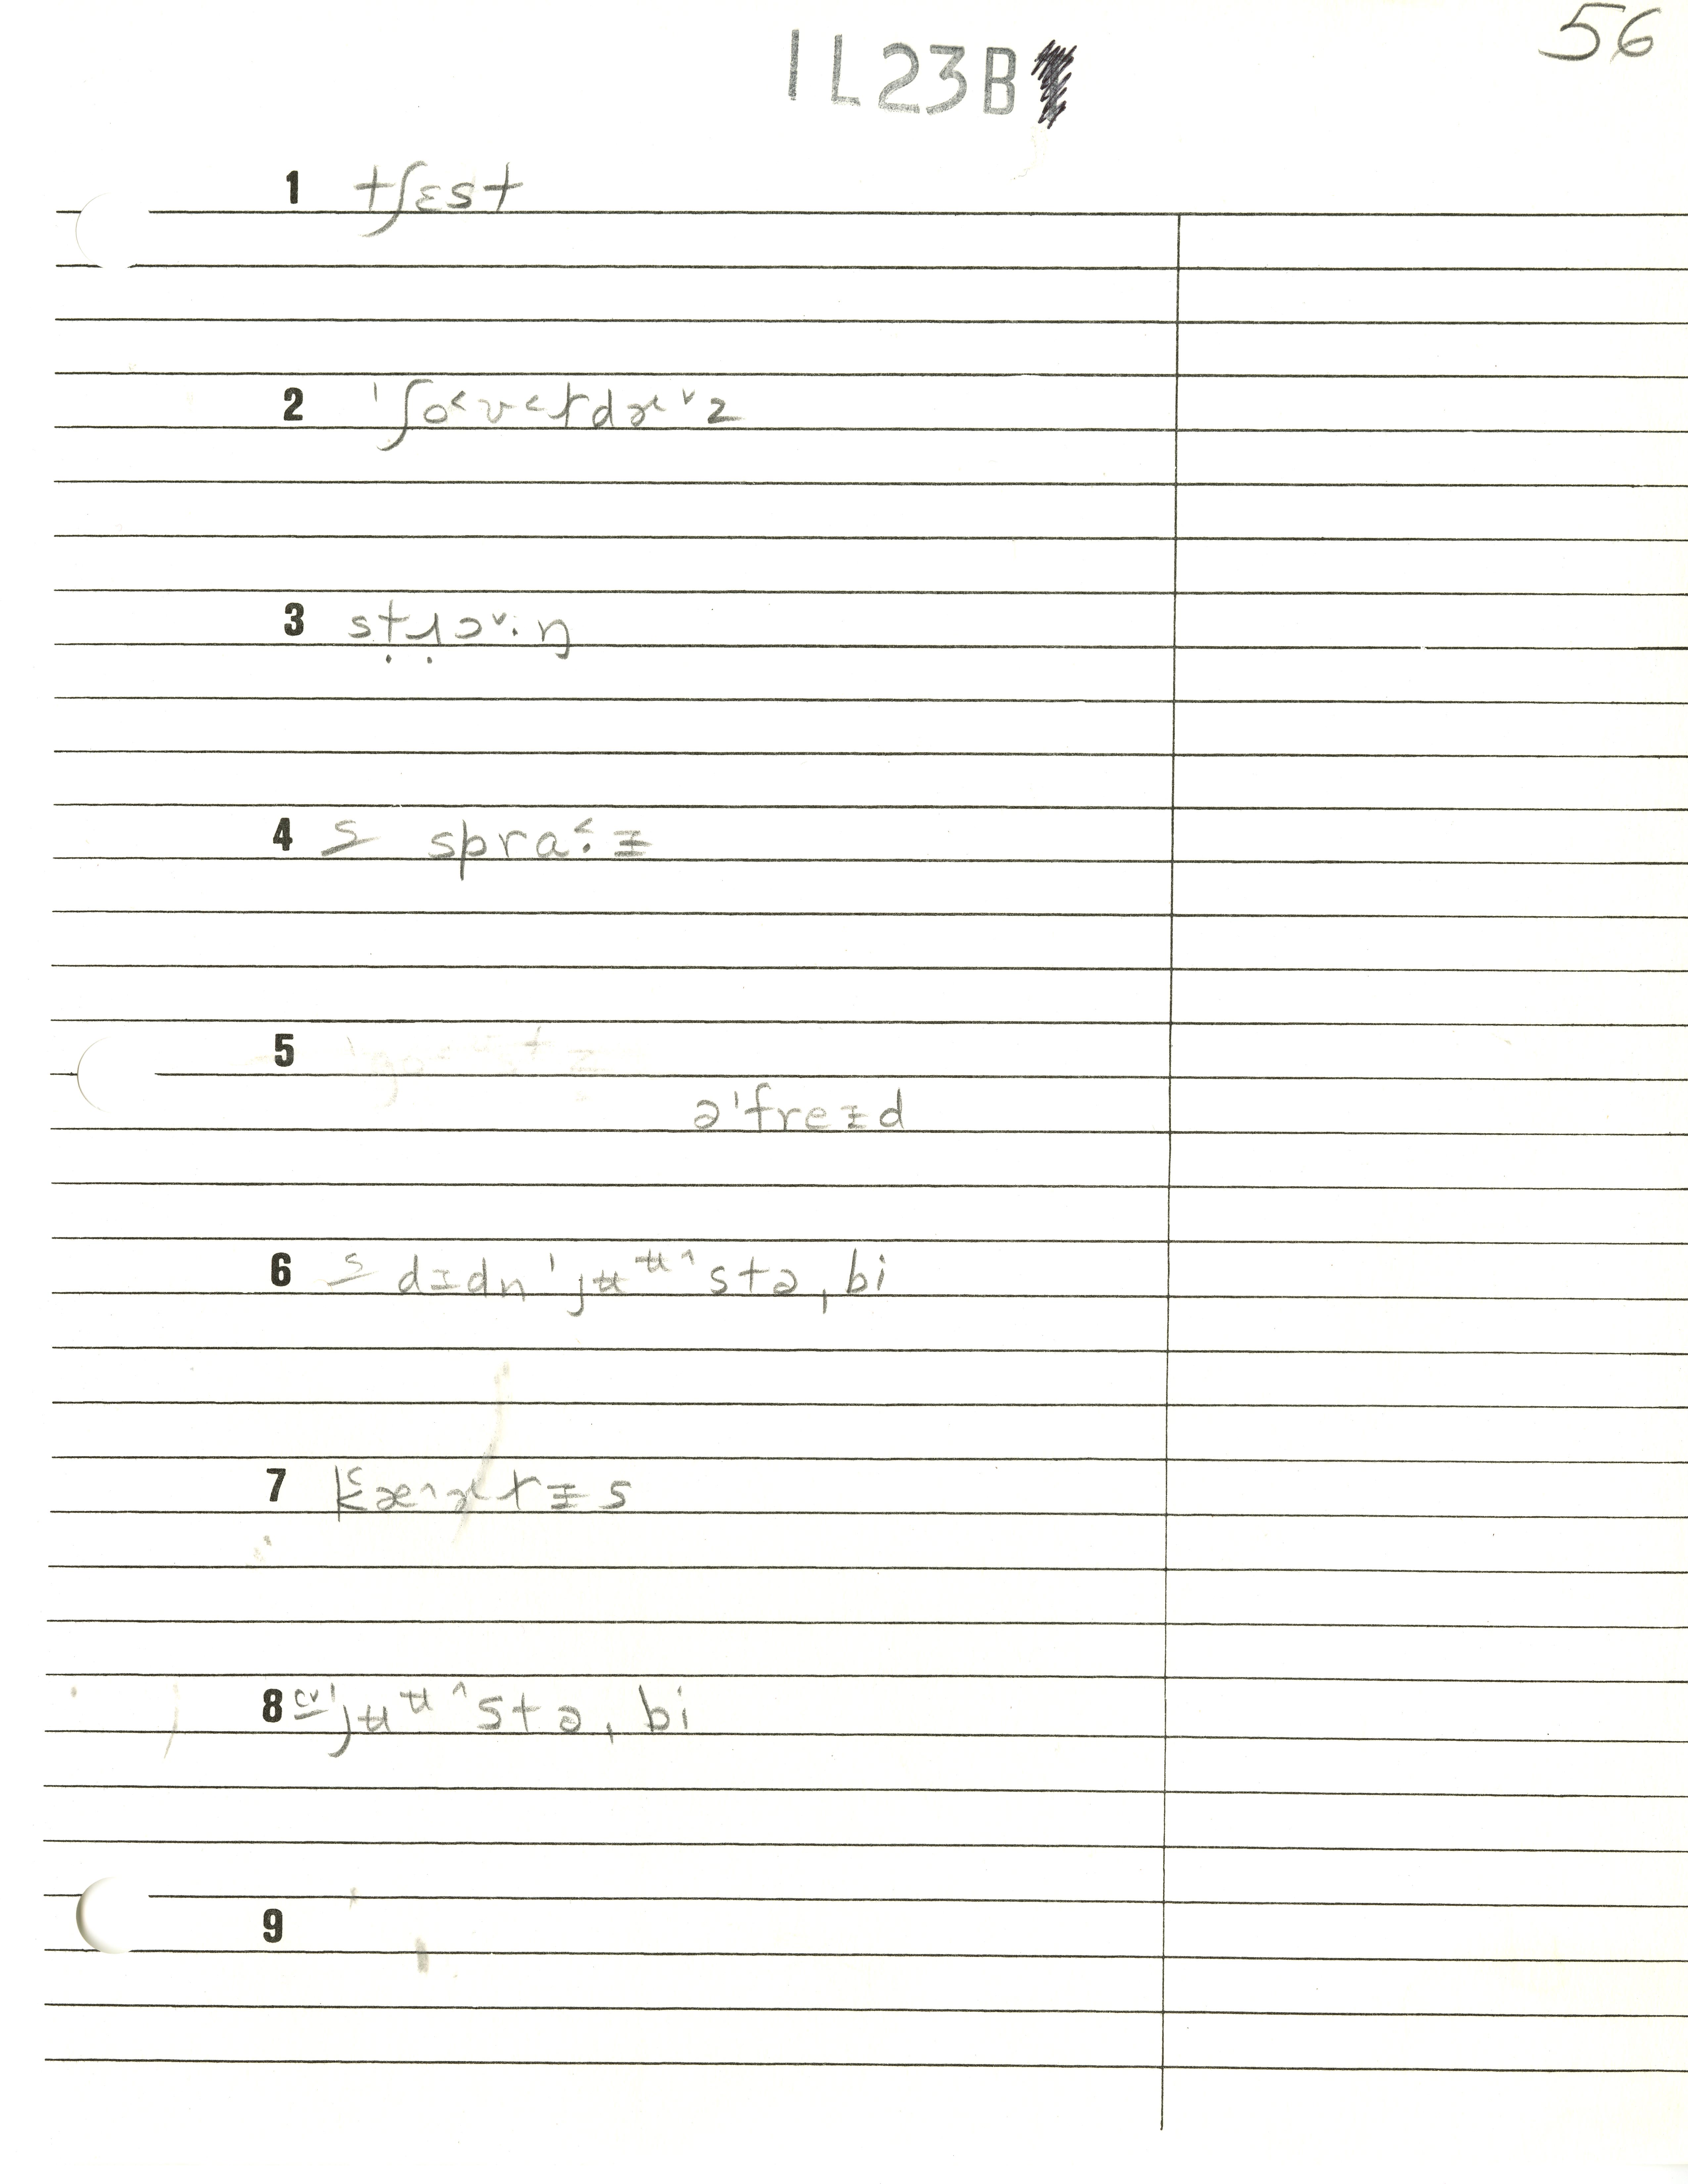 56
1L23B
1 tʃɛst
2 ˈʃo˂ʊ˂ɾdɚ˅z
3 sṭɹ̣ɔ˅·ŋ
4 s spra˂·ɪ
5
əˈfreɪd
6 s dɪdn ˈjʉᵾ˄stə ˌbi
7 k˂æ˄ɚɾɨs
8 cv ˈjʉᵾ˄stə ˌbi
9